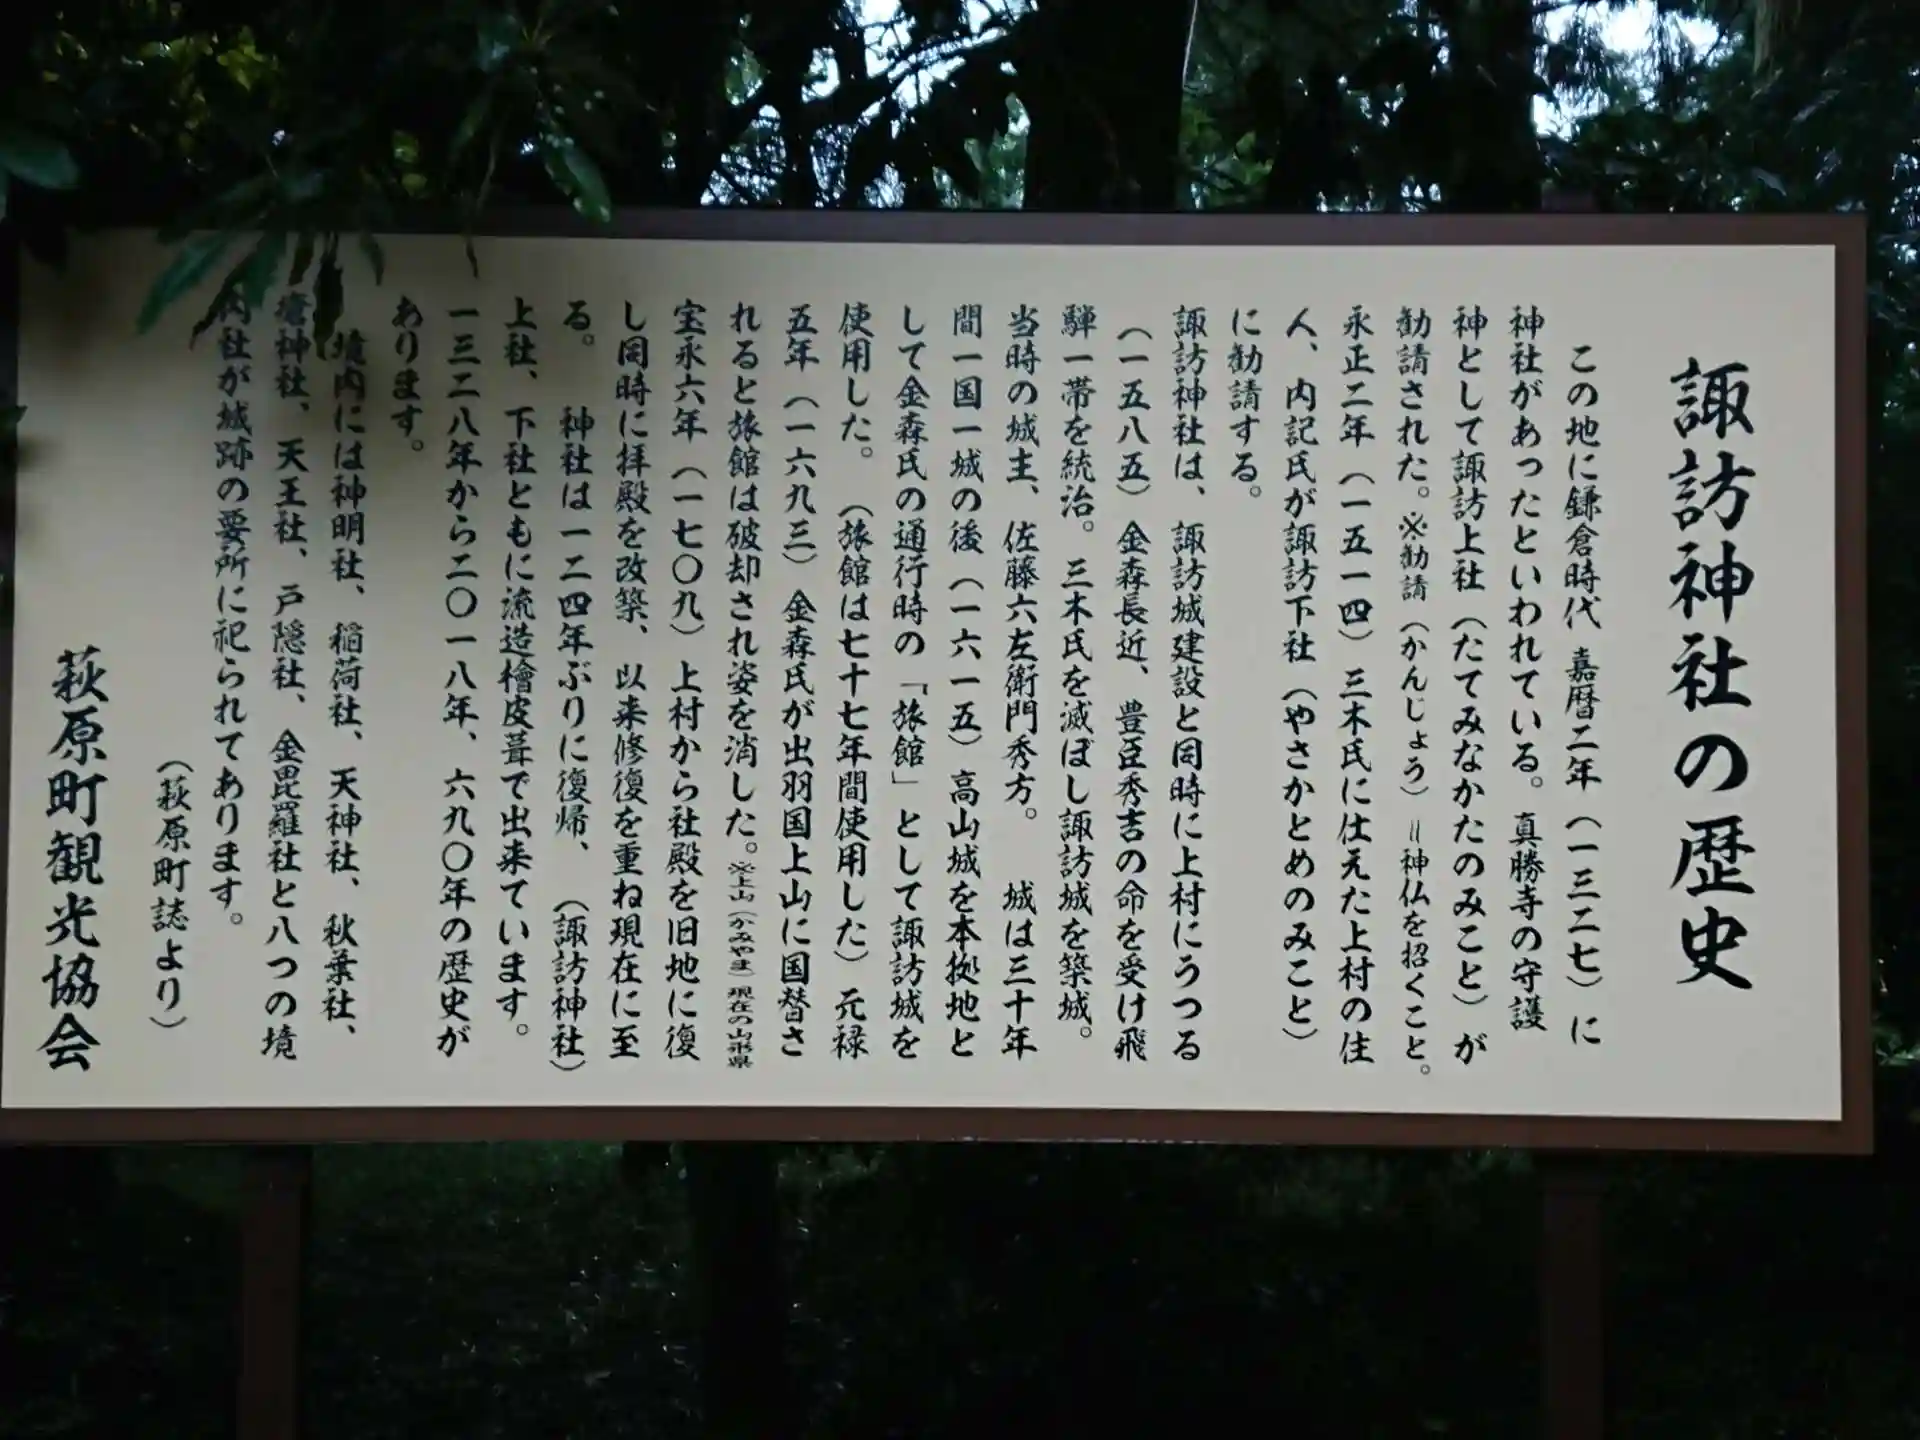 諏訪神社の歴史
この地に鎌倉時代 嘉暦二年（一三二七）に
神社があったといわれている。真勝寺の守護
神として諏訪上社（たてみなかたのみこと）が
勧請された。※勧請（かんじょう）＝神仏を招くこと。
永正二年（一五一四）三木氏に仕えた上村の住
人、内記氏が諏訪下社（やさかとめのみこと）
に勧請する。
諏訪神社は、諏訪城建設と同時に上村にうつる
（一五八五）金森長近、豊臣秀吉の命を受け飛
騨一帯を統治。三木氏を滅ぼし諏訪城を築城。
当時の城主、佐藤六左衛門秀方。 城は三十年
間一国一城の後（一六一五）高山城を本拠地と
して金森氏の通行時の「旅館」として諏訪城を
使用した。（旅館は七十七年間使用した）元禄
五年（一六九三）金森氏が出羽国上山に国替さ
れると旅館は破却され姿を消した。※上山（かみやま）現在の山形県
宝永六年（一七〇九）上村から社殿を旧地に復
し同時に拝殿を改築、以来修復を重ね現在に至
る。 神社は一二四年ぶりに復帰、（諏訪神社）
上社、下社ともに流造檜皮葺で出来ています。
一三二八年から二〇一八年、六九〇年の歴史が
あります。
境内には神明社、稲荷社、天神社、秋葉社、
神社、天王社、戸隠社、金毘羅社と八つの境
内社が城跡の要所に祀られてあります。
（萩原町誌より）
萩原町観光協会